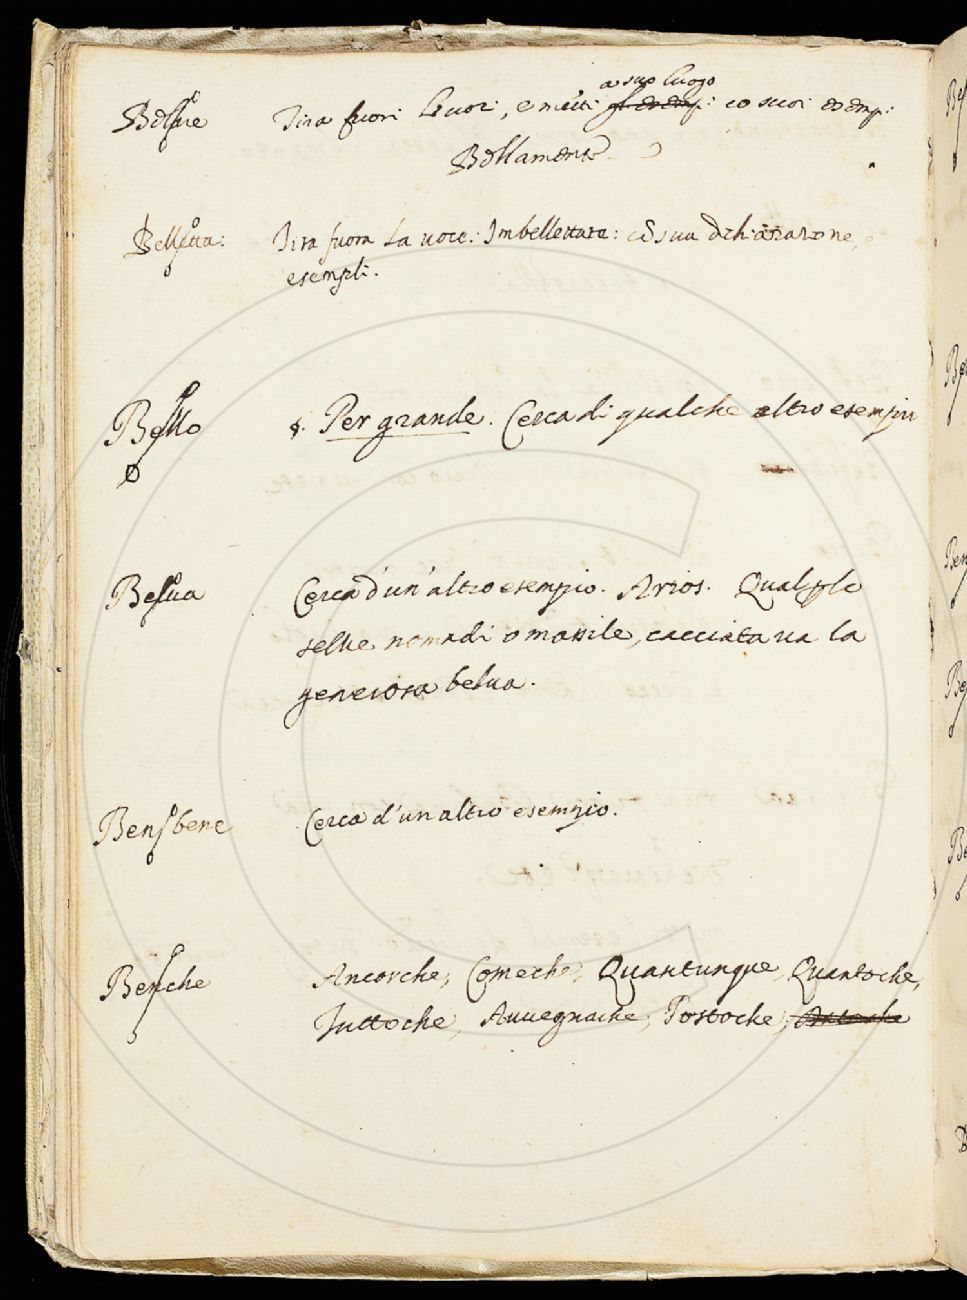 a suo luogo
Tira fuori , e metti gl'esempi: co suoi esempi:
Bellamente
Belletta: Tira fuora la uoce: Imbellettara: cō sua dichiarazione,
esempli.
Bello §. Per grande. Cerca di qualche altro esempio
Belua Cerca d'un'altro esempio. Arios. Qual per le
selue nomadi o massile, cacciata ua la
generosa belua.
Benbene Cerca d'un altro esempio.
Benche Ancorche, Comeche, Quantunque, Quantoche,
Tuttoche, Auuegnache, Postoche,